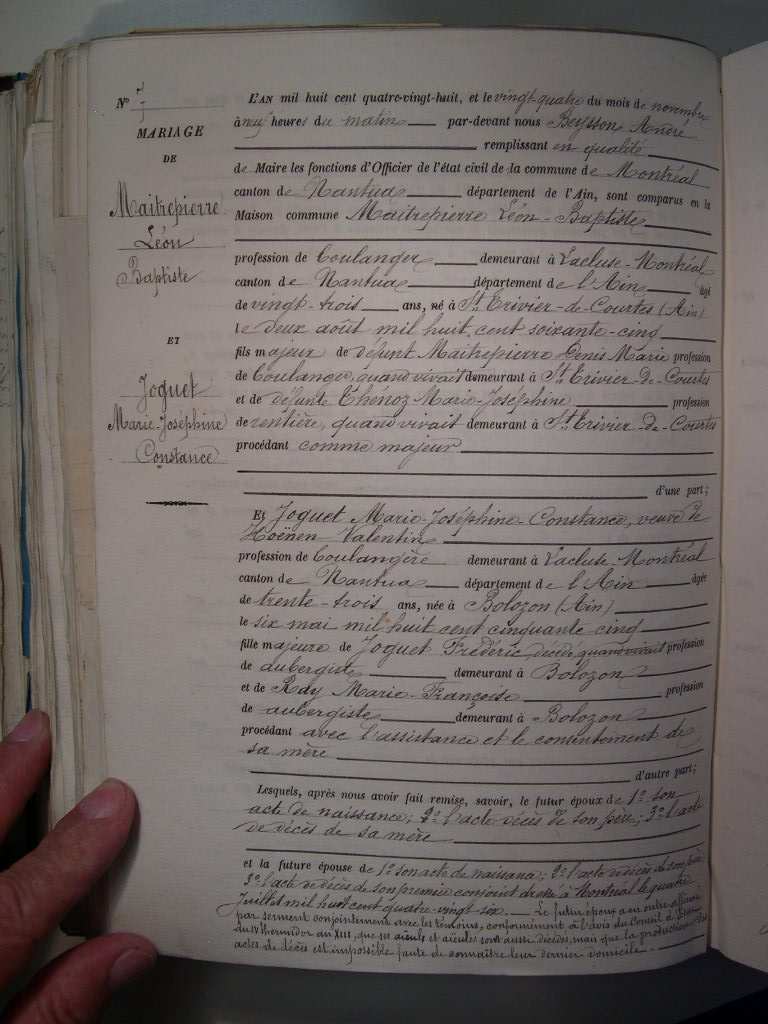 N° 7
MARIAGE
DE
Maitrepierre
Léon
Baptiste
ET
Joguet
Marie-Joséphine
Constance
L'AN mil huit cent quatre-vingt-huit, et le vingt-quatre du mois de novembre
à neuf heures du matin par-devant nous Beysson André
remplissant en qualité
de Maire les fonctions d'Officier de l'état civil de la commune de Montréal
canton de Nantua département de l'Ain, sont comparus en la
Maison commune Maitrepierre Léon-Baptiste
profession de boulanger demeurant à Lacluse-Montréal
canton de Nantua département de l'Ain âgé
de vingt-trois ans, né à St Trivier-de-Courtes (Ain)
le deux août mil huit cent soixante-cinq
fils majeur de défunt Maitrepierre Denis Marie profession
de boulanger, quand vivait demeurant à St Trivier-de-Courtes
et de défunte Thenoz Marie-Joséphine profession
de rentière, quand vivait demeurant à St Trivier-de-Courtes
procédant comme majeur
d'une part;
Et Joguet Marie-Joséphine-Constance, veuve de
Hoënen Valentin
profession de boulangère demeurant à Lacluse-Montréal
canton de Nantua département de l'Ain âgée
de trente-trois ans, née à Bolozon (Ain)
le six mai mil huit cent cinquante cinq
fille majeure de Joguet Frédéric, décédé, quand vivait profession
de aubergiste demeurant à Bolozon
et de Ray Marie-Françoise profession
de aubergiste demeurant à Bolozon
procédant avec l'assistance et le consentement de
sa mère
d'autre part;
Lesquels, après nous avoir fait remise, savoir, le futur époux de 1° son
acte de naissance; 2° l'acte décès de son père; 3° l'acte
de décès de sa mère
et la future épouse de 1° son acte de naissance; 2° l'acte de décès de son père
3° l'acte de décès de son premier conjoint dressé à Montréal le quatre
Juillet mil huit cent quatre-vingt-six. Le futur époux a en outre affirmé
par serment conjointement avec les témoins, conformément à l'avis du Conseil d'Etat
du IV thermidor an XIII, que ses aïeuls et aïeules sont aussi décédés, mais que la production des
actes de décès est impossible faute de connaître leur dernier domicile.